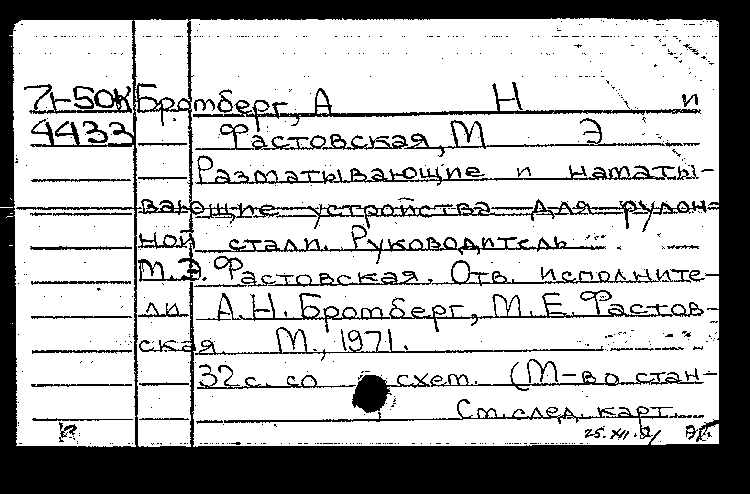 71-50K Бромберг, А Н и
4433 Фастовская, М Э
Разматывающие и наматы-
вающие устройства для рулон-
ной стали. Руководитель
М.Э. Фастовская. Отв. исполните-
ли А.Н. Бромберг, М.Е. Фастов-
ская. М., 1971.
32 с. со схем. (М-во стан-
См. след. карт.
25.XII.